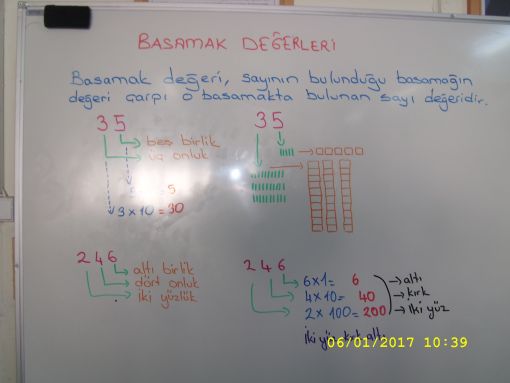 BASAMAK DEĞERLERİ
Basamak değeri, sayının bulunduğu basamağın
değeri çarpı o basamakta bulunan sayı değeridir.
35
beş birlik
üç onluk
= 5
3 x 10 = 30
35
246
altı birlik
dört onluk
iki yüzlük
246
6x1= 6 → altı
4x10= 40 → kırk
2 x 100= 200 → iki yüz
iki yüz kırk altı
06/01/2017 10:39